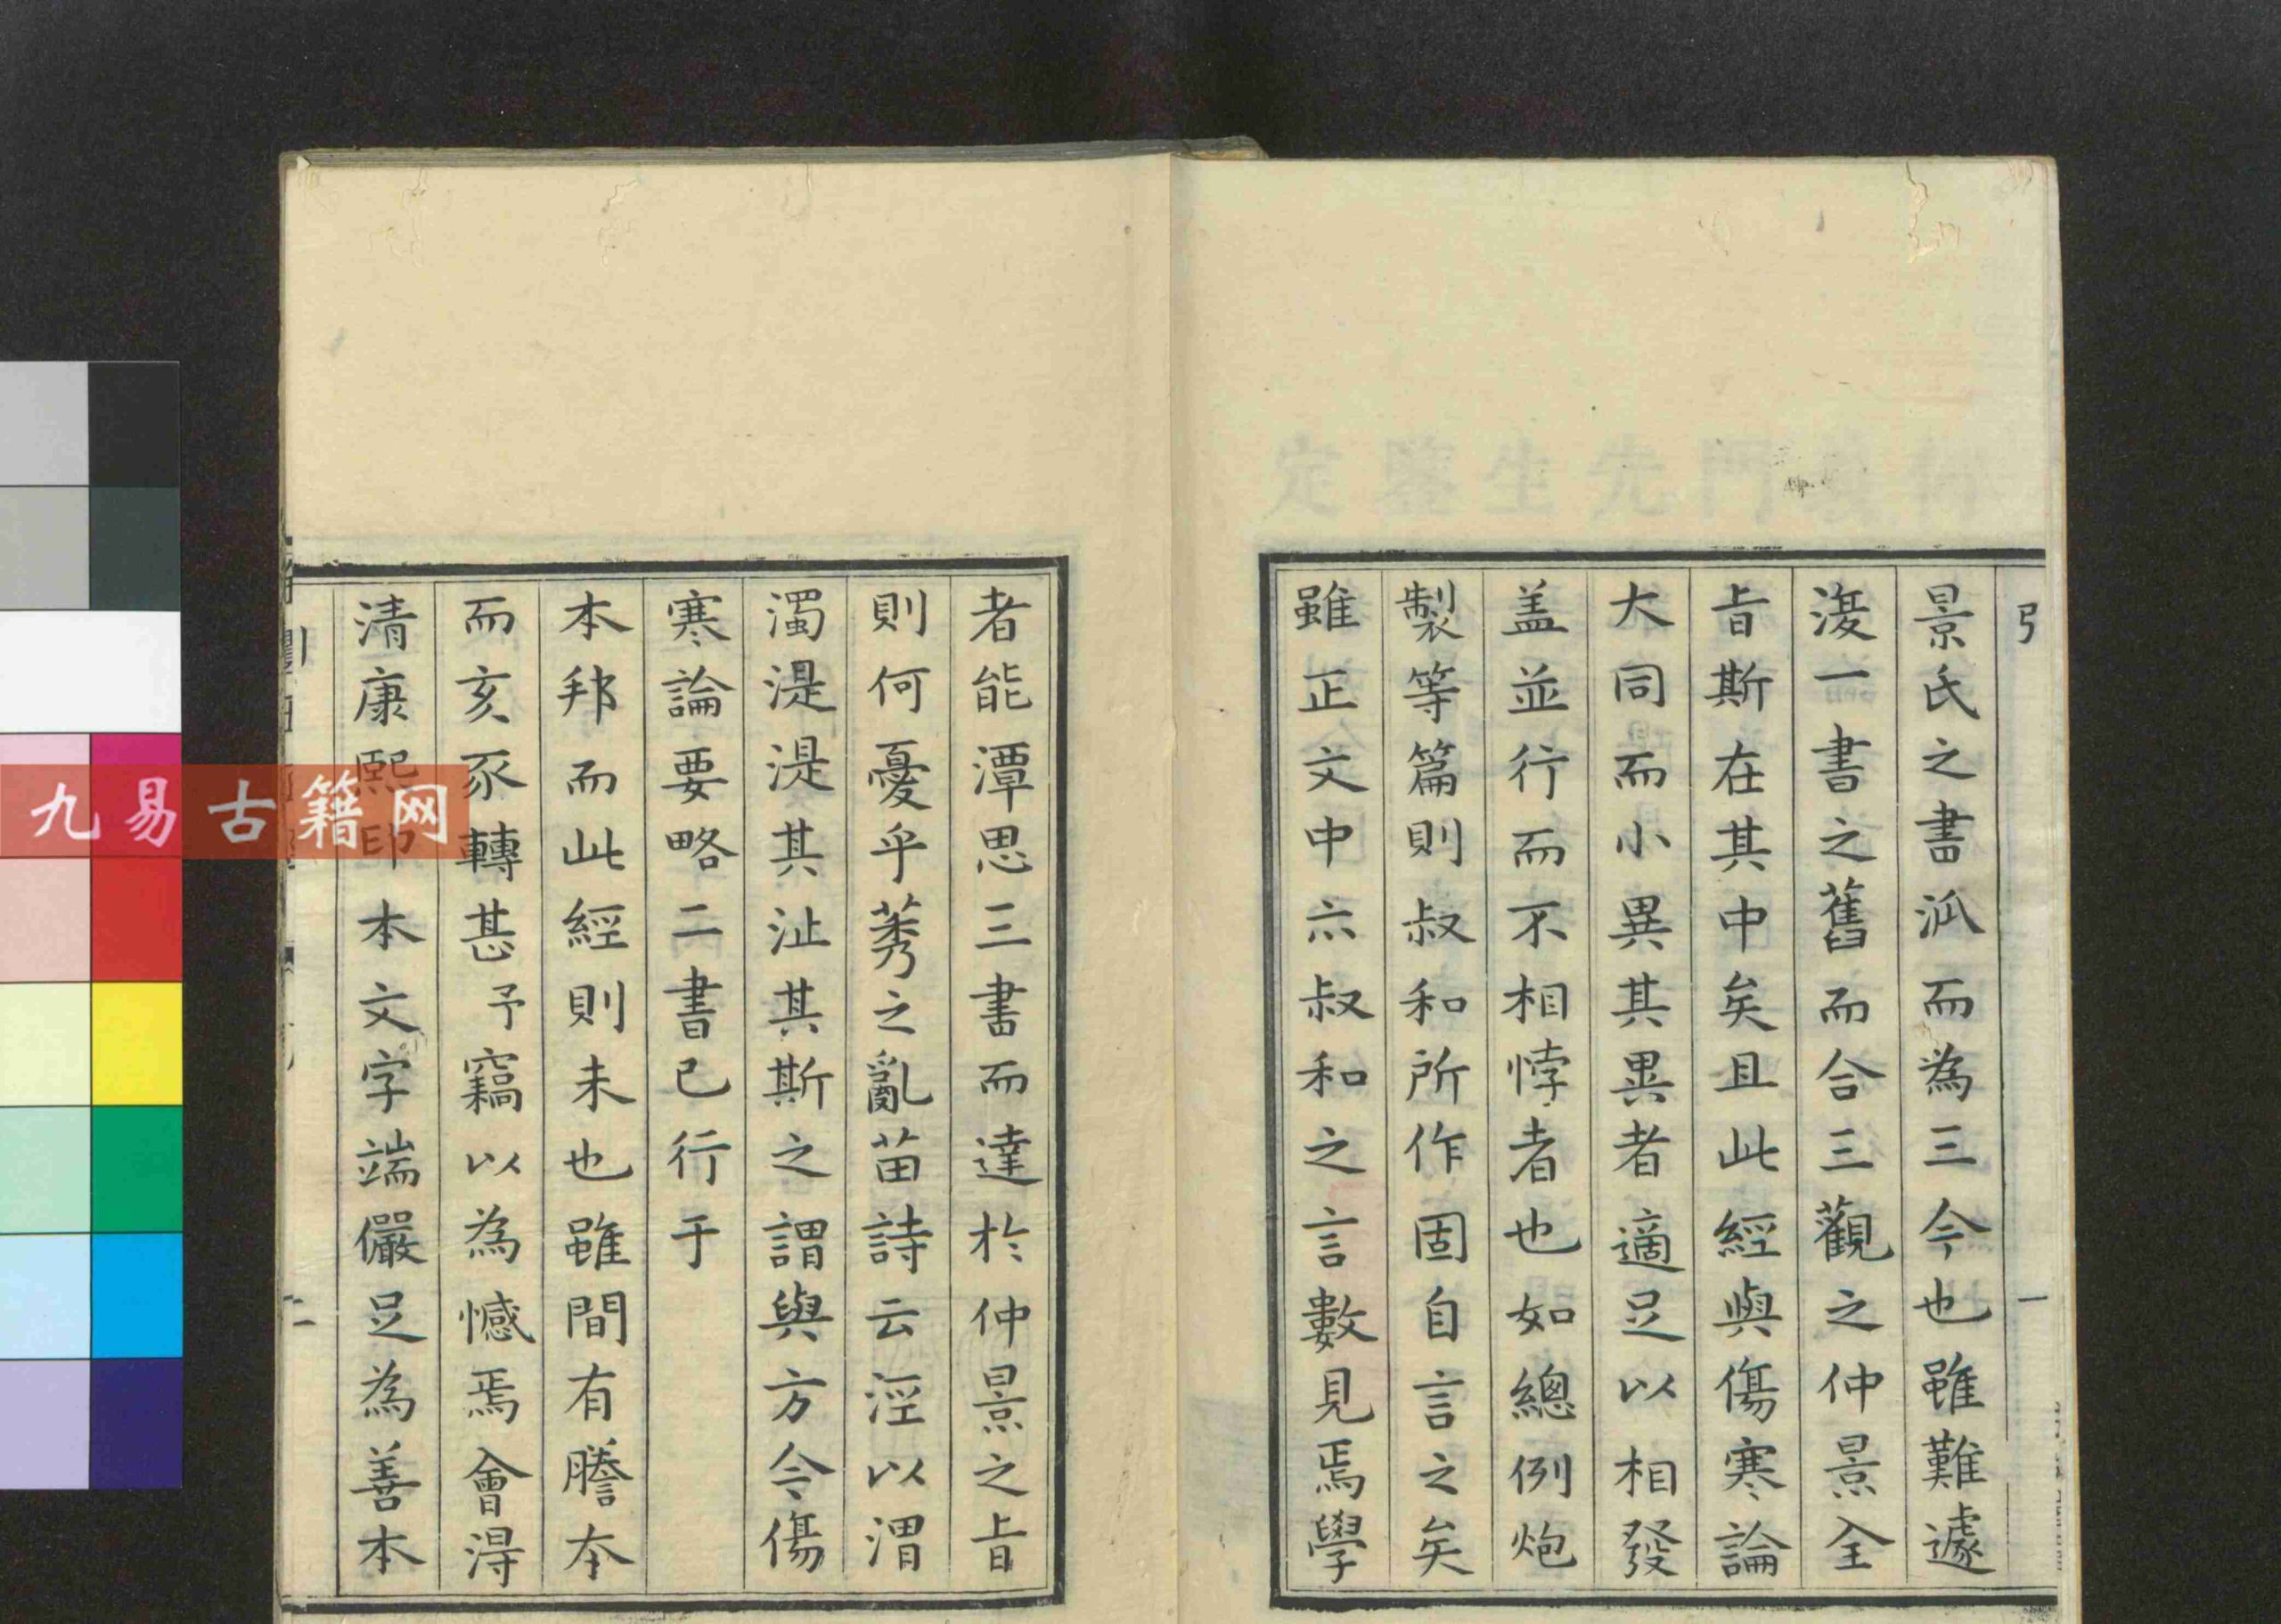 景氏之書泒而為三今也雖難遽
湲一書之舊而合三觀之仲景全
㫖斯在其中矣且此經與傷寒論
大同而小異其異者適足以相發
盖並行而不相悖者也如總例炮
製等篇則叔和所作固自言之矣
雖正文中六叔和之言數見焉學
者能潭思三書而達於仲景之㫖
則何憂乎莠之亂苗詩云涇以渭
濁湜湜其沚其斯之謂與方今傷
寒論要略二書已行于
本邦而此經則未也雖間有謄本
而亥豕轉甚予竊以為憾焉會得
清康熙印本文字端儼足為善本
一
二
九易古籍网